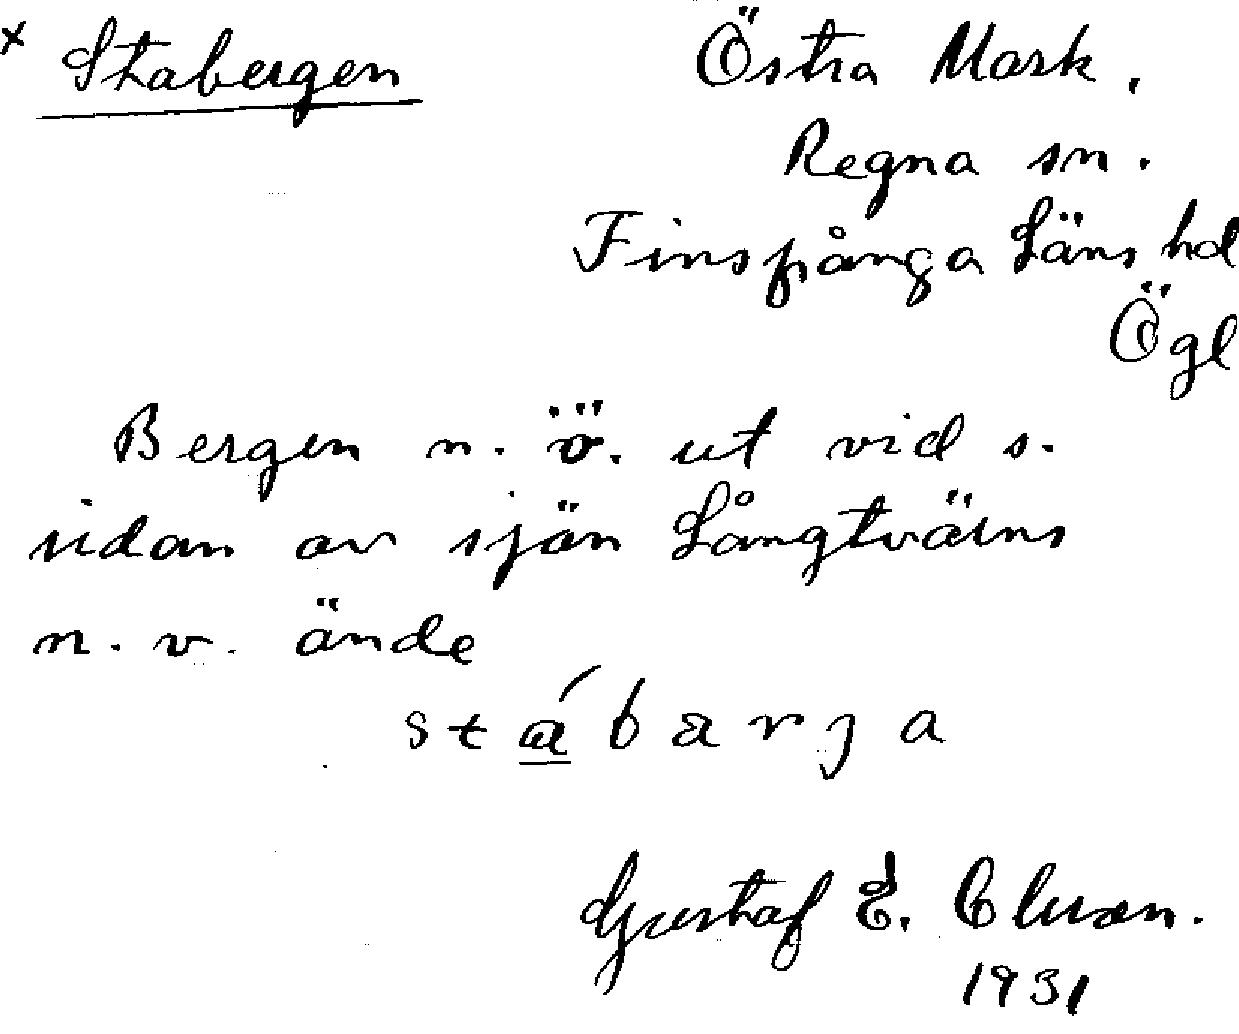 x Stabergen
Östra Mark.
Regna sn.
Finspånga Läns hd
Ögl
Bergen n. ö. ut vid s.
sidan av sjön Långtvärns
n. v. ände
stábarja
Gustaf E. Cluson.
1931